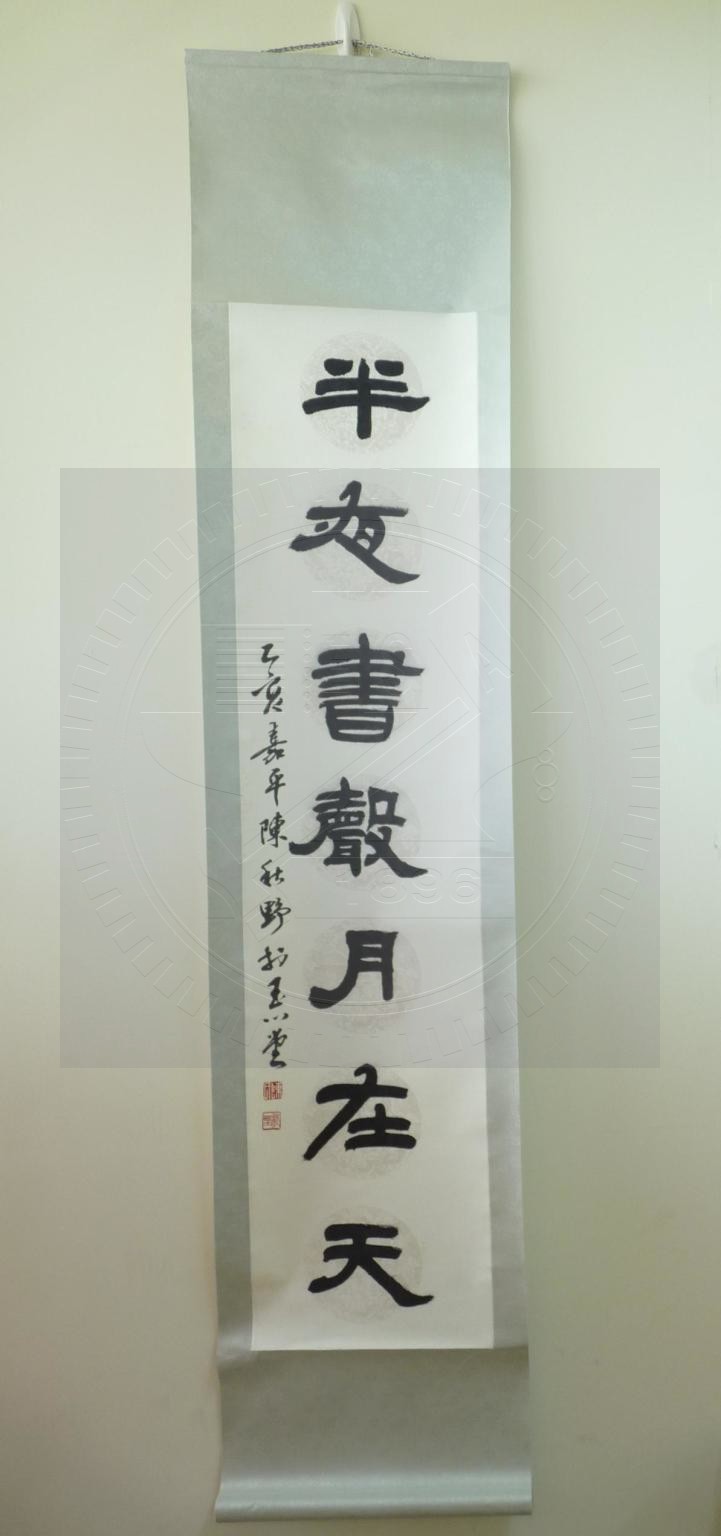 半夜書聲月在天
乙亥嘉平陳秋野於玉心堂
1896